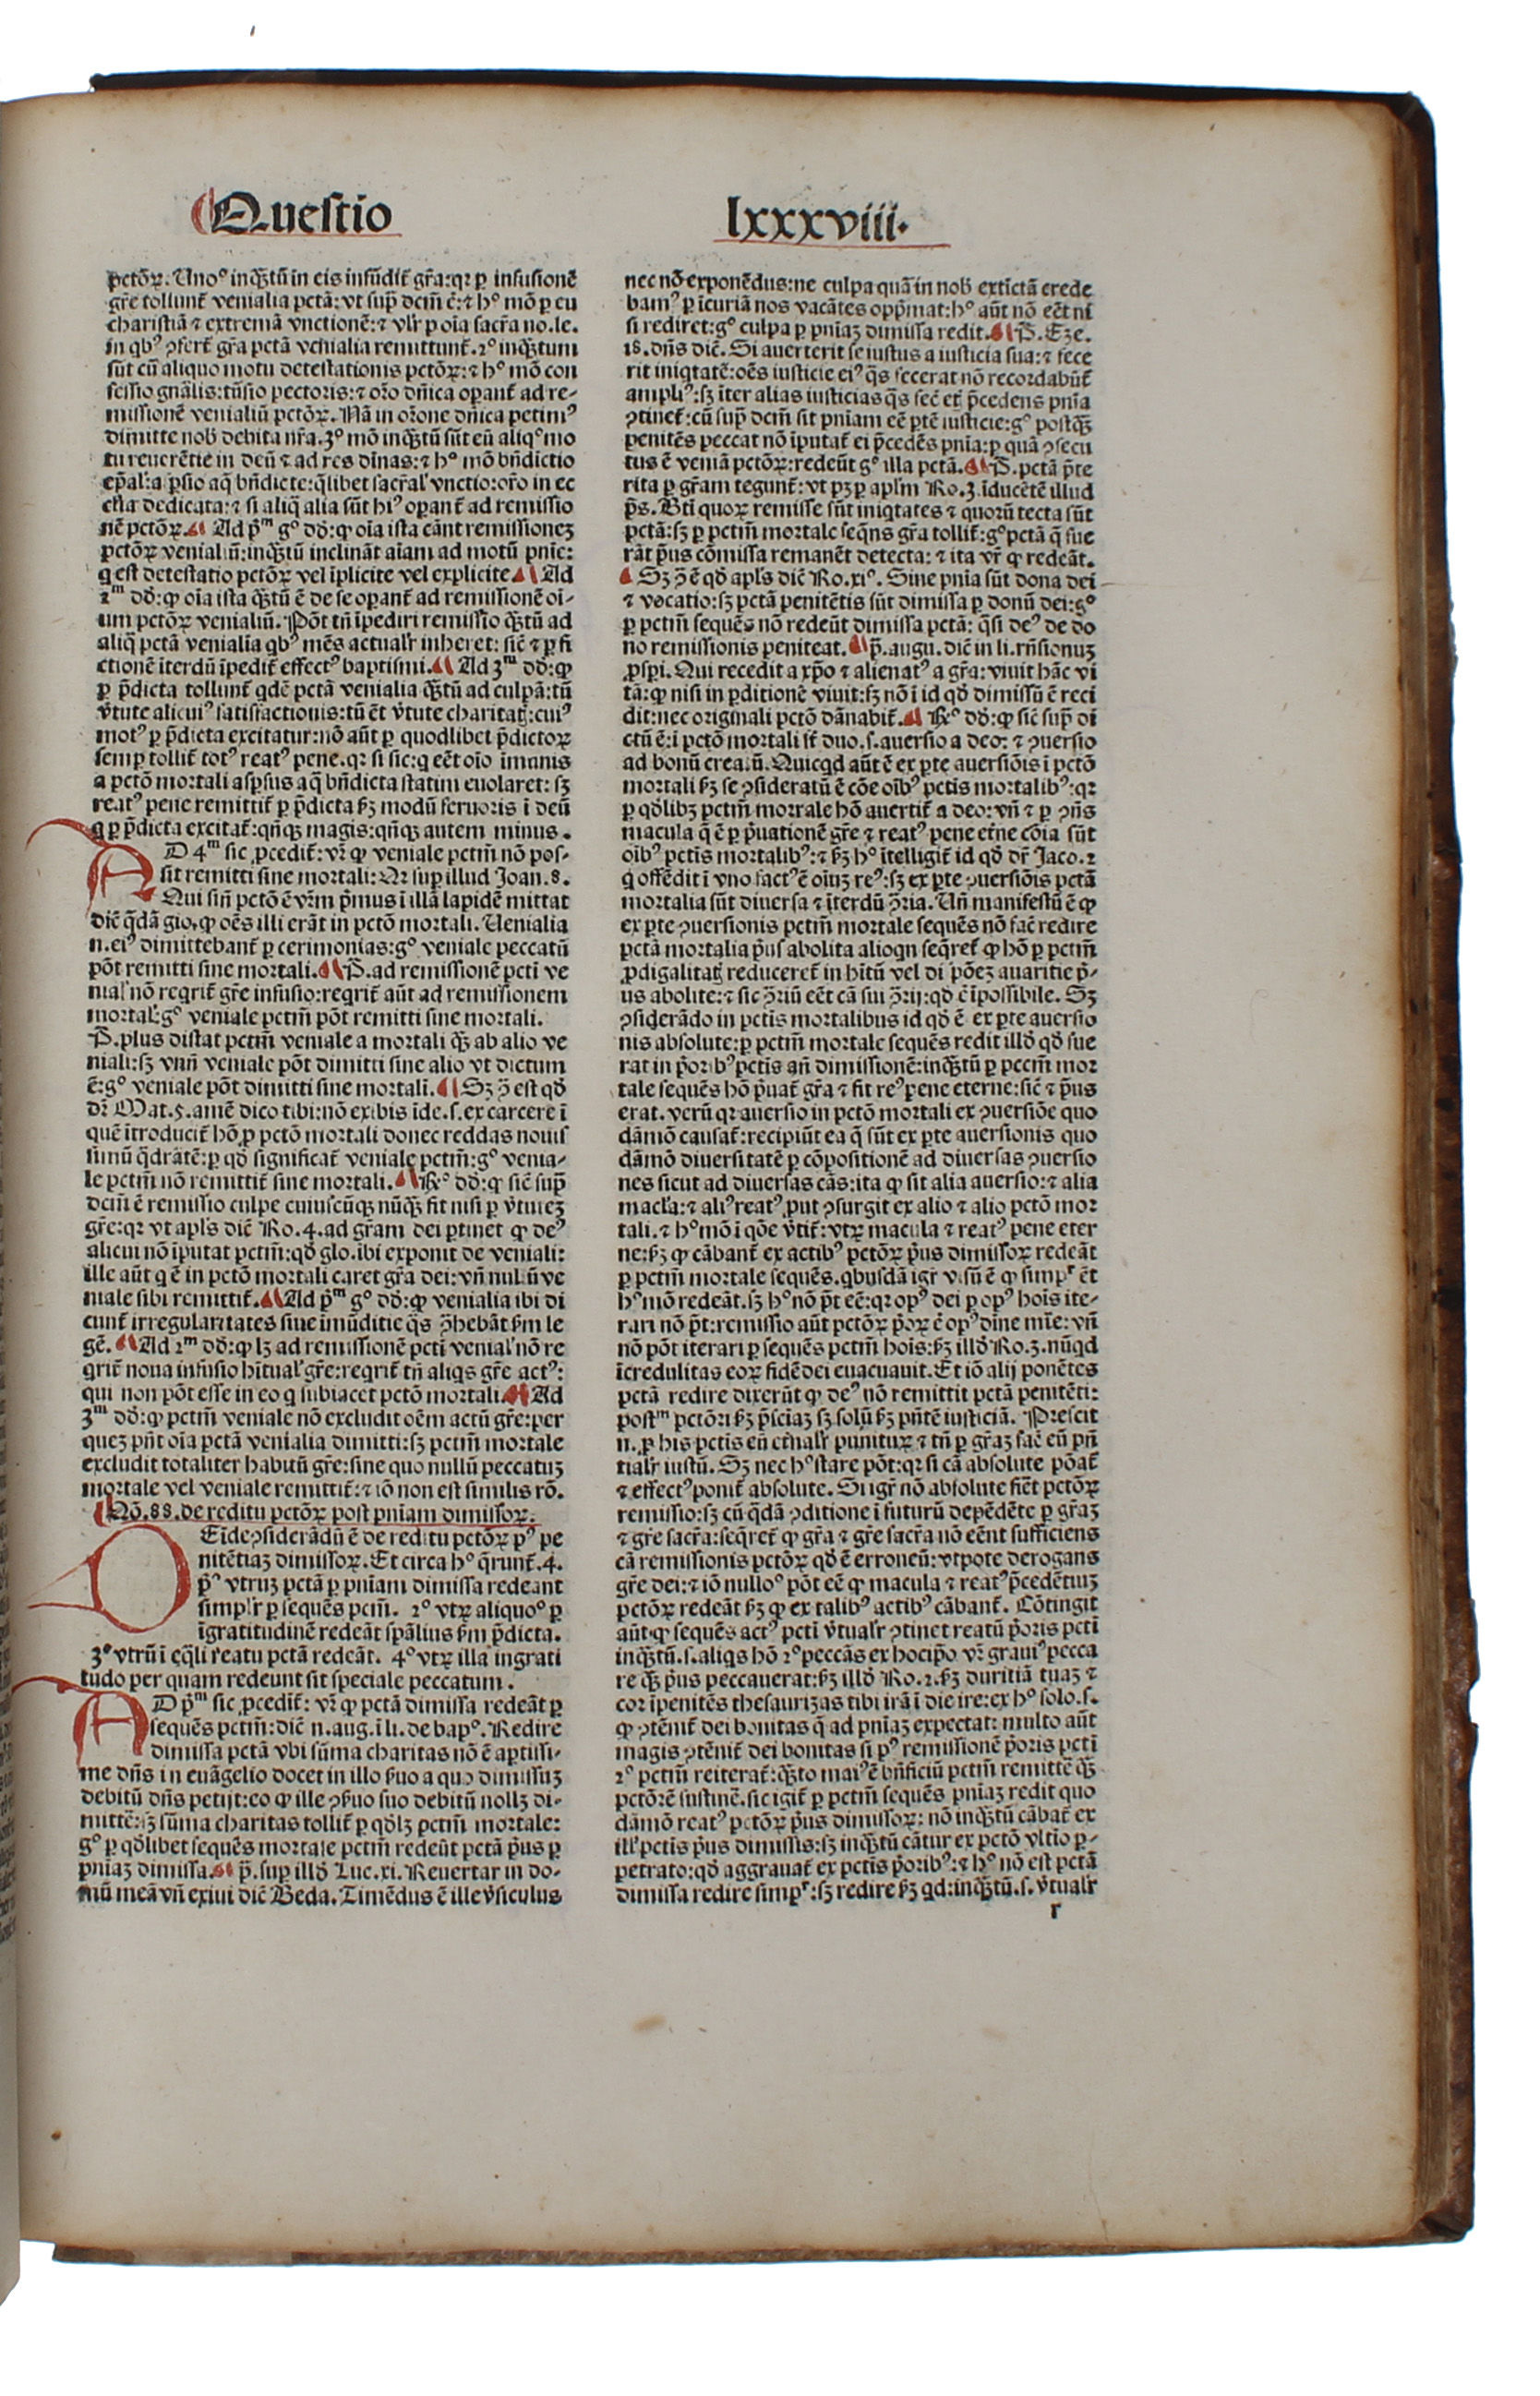 Questio
lxxxviii.
pctōꝝ. Uno° inqꝫtū in eis infūdit̄ gr̄a:qꝛ ꝑ infusionē
gr̄e tollunt̄ venialia pctā: vt sup̄ dcm̄ ē:⁊ h° mō ꝑ eu
charistiā ⁊ extremā vnctionē:⁊ vl'r ꝑ oīa sacr̄a no.le.
in qbꝰ ꝯfert̄ gr̄a pctā venialia remittunt̄. 2° inqꝫtum
sūt cū aliquo motu detestationis pctōꝝ:⁊ h° mō con
fessio gnālis:tūsio pectoris:⁊ oro dn̄ica oꝑant̄ ad re-
missionē venialiū pctōꝝ. Nā in orone dn̄ica petimꝰ
dimitte nob̄ debita nr̄a. 3° mō inqꝫtū sūt cū aliq° mo
tu reuerētie in deū ⁊ ad res dīnas:⁊ h° mō bn̄dictio
ep̄al':aꝑsio aq̄ bn̄dicte:q̄libet sacral' vnctio:oro in ec
cl'ia dedicata:⁊ si aliq̄ alia sūt hiꝰ oꝑant̄ ad remissio
nē pctōꝝ. Ad pᵐ g° dd̄:ꝙ oīa ista cānt remissioneꝫ
pctōꝝ venialiū:inqꝫtū inclināt aīam ad motū pnīe:
q est detestatio pctōꝝ vel īplicite vel explicite. Ad
2ᵐ dd̄:ꝙ oīa ista qꝫtū ē de se oꝑant̄ ad remissionē oī-
um pctōꝝ venialiū. Pōt tn̄ īpediri remissio qꝫtū ad
aliq̄ pctā venialia qbꝰ mēs actual'r inheret: sic̄ ⁊ ꝑ fi
ctionē īterdū īpedit̄ effectꝰ baptismi. Ad 3ᵐ dd̄:ꝙ
ꝑ p̄dicta tollunt̄ qdē pctā venialia qꝫtū ad culpā:tū
v̄tute alicuiꝰ satisfactionis:tū ēt v̄tute charitatꝭ:cuiꝰ
motꝰ ꝑ p̄dicta excitatur:nō aūt ꝑ quodlibet p̄dictoꝝ
semꝑ tollit̄ totꝰ reatꝰ pene.qꝛ si sic:q eēt oīo īmanis
a pctō mortali aspsus aq̄ bn̄dicta statim euolaret: sꝫ
reatꝰ pene remittit̄ ꝑ p̄dicta ẜꝫ modū feruoris ī deū
q ꝑ p̄dicta excitat̄:qn̄qꝫ magis:qn̄qꝫ autem minus.
AD 4ᵐ sic ꝓcedit̄: vr̄ ꝙ veniale pctm̄ nō pos-
sit remitti sine mortali: Qꝛ sup illud Joan.8.
Qui sin̄ pctō ē vr̄m p̄mus ī illā lapidē mittat
dic̄ q̄dā glo.ꝙ oēs illi erāt in pctō mortali. Uenialia
n.eiꝰ dimittebant̄ ꝑ cerimonias:g° veniale peccatū
pōt remitti sine mortali. P̄.ad remissionē pcti ve
nial' nō reqrit̄ gr̄e infusio:reqrit̄ aūt ad remissionem
mortal':g° veniale pctm̄ pōt remitti sine mortali.
P̄.plus distat pctm̄ veniale a mortali qꝫ ab alio ve
niali:sꝫ vnn̄ veniale pōt dimitti sine alio vt dictum
ē:g° veniale pōt dimitti sine mortali. Sꝫ ꝯ̄ est qd̄
dr̄ Mat.5.amē dico tibi:nō exibis īde.s.ex carcere ī
quē ītroducit̄ hō ꝑ pctō mortali donec reddas nouis
simū q̄drātē:ꝑ qd̄ significat̄ veniale pctm̄:g° venia-
le pctm̄ nō remittit̄ sine mortali. ℞° dd̄:ꝙ sic̄ sup̄
dcm̄ ē remissio culpe cuiuscūqꝫ nūqꝫ fit nisi ꝑ v̄tuteꝫ
gr̄e:qꝛ vt apl's dic̄ Ro.4.ad gr̄am dei ꝑtinet ꝙ deꝰ
alicui nō īputat pctm̄:qd̄ glo.ibi exponit de veniali:
ille aūt q ē in pctō mortali caret gr̄a dei:vn̄ nullū ve
niale sibi remittit̄. Ad pᵐ g° dd̄:ꝙ venialia ibi di
cunt̄ irregularitates siue īmūditie q̄s ꝯ̄hebāt ẜm le
gē. Ad 2ᵐ dd̄:ꝙ lꝫ ad remissionē pcti venial' nō re
qrit̄ noua infusio hītual' gr̄e:reqrit̄ tn̄ aliqs gr̄e actꝰ:
qui non pōt esse in eo q subiacet pctō mortali. Ad
3ᵐ dd̄:ꝙ pctm̄ veniale nō excludit oēm actū gr̄e:per
queꝫ pn̄t oīa pctā venialia dimitti:sꝫ pctm̄ mortale
excludit totaliter habitū gr̄e:sine quo nullū peccatuꝫ
mortale vel veniale remittit̄:⁊ iō non est similis rō.
Qō.88.de reditu pctōꝝ post pnīam dimissoꝝ.
DEīde ꝯsiderādū ē de reditu pctōꝝ pꝰ pe
nitētiaꝫ dimissoꝝ. Et circa h° q̄runt̄.4.
p° vtruꝫ pctā ꝑ pnīam dimissa redeant
simpl'r ꝑ sequēs pctm̄. 2° vtꝝ aliquo° ꝑ
īgratitudinē redeāt spālius ẜm p̄dicta.
3° vtrū ī eq̄li reatu pctā redeāt. 4° vtꝝ illa ingrati
tudo per quam redeunt sit speciale peccatum.
AD pᵐ sic ꝓcedit̄: vr̄ ꝙ pctā dimissa redeāt ꝑ
sequēs pctm̄:dic̄ n.aug.ī li.de bap°. Redire
dimissa pctā vbi sūma charitas nō ē aptissi-
me dn̄s in euāgelio docet in illo ẜuo a quo dimissuꝫ
debitū dn̄s petijt:eo ꝙ ille ꝯẜuo suo debitū nollꝫ di-
mittē:sꝫ sūma charitas tollit̄ ꝑ qd̄lꝫ pctm̄ mortale:
g° ꝑ qd̄libet sequēs mortale pctm̄ redeūt pctā p̄us ꝑ
pniaꝫ dimissa. P̄.sup illd̄ Luc.xi. Reuertar in do-
mū meā vn̄ exiui dic̄ Beda. Timēdus ē ille v̄siculus
nec nō exponēdus:ne culpa quā in nob̄ extīctā crede
bamꝰ ꝑ īcuriā nos vacātes opp̄mat:h° aūt nō eēt ni
si rediret:g° culpa ꝑ pniaꝫ dimissa redit. P̄. Eze.
18.dn̄s dic̄. Si auerterit se iustus a iusticia sua:⁊ fece
rit iniqtatē:oēs iusticie eiꝰ q̄s fecerat nō recordabūt̄
ampliꝰ:sꝫ īter alias iusticias q̄s fec̄ et̄ p̄cedens pnīa
ꝯtinet̄:cū sup̄ dcm̄ sit pniam eē ꝑtē iusticie:g° postqꝫ
penitēs peccat nō īputat̄ ei p̄cedēs pnia:ꝑ quā ꝯsecu
tus ē veniā pctōꝝ:redeūt g° illa pctā. P̄.pctā p̄te
rita ꝑ gr̄am tegunt̄: vt pꝫ ꝑ apl'm Ro.3.īducētē illud
ps. Bti quoꝝ remisse sūnt iniqtates ⁊ quorū tecta sūt
pctā:sꝫ ꝑ pctm̄ mortale seqns gr̄a tollit̄:g° pctā q̄ fue
rāt p̄us cōmissa remanēt detecta: ⁊ ita vr̄ ꝙ redeāt.
Sꝫ ꝯ̄ ē qd̄ apl's dic̄ Ro.xi°. Sine pnia sūt dona dei
⁊ vocatio:sꝫ pctā penitētis sūt dimissa ꝑ donū dei:g°
ꝑ pctm̄ sequēs nō redeūt dimissa pctā: q̄si deꝰ de do
no remissionis peniteat. P̄.augu.dic̄ in li.rn̄sionuꝫ
ꝓspi. Qui recedit a xp̄o ⁊ alienatꝰ a gr̄a: viuit hāc vi
tā:ꝙ nisi in ꝑditionē viuit:sꝫ nō ī id qd̄ dimissū ē reci
dit:nec originali pctō dānabit̄. ℞° dd̄:ꝙ sic̄ sup̄ di
ctū ē:ī pctō mortali st̄ duo.s.auersio a deo: ⁊ ꝯuersio
ad bonū creatū. Quicqd aūt ē ex ꝑte auersiōis ī pctō
mortali ẜꝫ se ꝯsideratū ē cōe oībꝰ pctis mortalibꝰ:qꝛ
ꝑ qd̄libꝫ pctm̄ mortale hō auertit̄ a deo:vn̄ ⁊ ꝑ ꝯn̄s
macula q̄ ē ꝑ p̄uationē gr̄e ⁊ reatꝰ pene etr̄ne cōia sūt
oībꝰ pctīs mortalibꝰ:⁊ ẜꝫ h° ītelligit̄ id qd̄ dr̄ Jaco.2
q offēdit ī vno factꝰ ē oīuꝫ reꝰ:sꝫ ex ꝑte ꝯuersiōis pctā
mortalia sūt diuersa ⁊ īterdū ꝯ̄ria. Un̄ manifestū ē ꝙ
ex ꝑte ꝯuersionis pctm̄ mortale sequēs nō fac̄ redire
pctā mortalia p̄us abolita alioqn seq̄ret̄ ꝙ hō ꝑ pctm̄
ꝓdigalitatꝭ reduceret̄ in hītū vel dispōeꝫ auaritie p̄-
us abolite:⁊ sic ꝯ̄riū eēt cā sui ꝯ̄rij:qd̄ ē īpossibile. Sꝫ
ꝯsiderādo in pctis mortalibus id qd̄ ē ex ꝑte auersio
nis absolute:ꝑ pctm̄ mortale sequēs redit illd̄ qd̄ fue
rat in p̄oribꝰ pctis an̄ dimissionē:inqꝫtū ꝑ pctm̄ mor
tale sequēs hō p̄uat̄ gr̄a ⁊ fit reꝰ pene eterne:sic̄ ⁊ p̄us
erat. verū qꝛ auersio in pctō mortali ex ꝯuersiōe quo
dāmō causat̄:recipiūt ea q̄ sūt ex ꝑte auersionis quo
dāmō diuersitatē ꝑ cōpositionē ad diuersas ꝯuersio
nes sicut ad diuersas cās:ita ꝙ sit alia auersio:⁊ alia
macl'a:⁊ aliꝰ reatꝰ ꝓut ꝯsurgit ex alio ⁊ alio pctō mor
tali.⁊ h° mō ī qōe v̄tit̄:vtꝝ macula ⁊ reatꝰ pene eter
ne:ẜꝫ ꝙ cābant̄ ex actibꝰ pctōꝝ p̄us dimissoꝝ redeāt
ꝑ pctm̄ mortale sequēs.qbusdā igr̄ visū ē ꝙ simpʳ ēt
h° mō redeāt.sꝫ h° nō p̄t eē:qꝛ opꝰ dei ꝑ opꝰ hoīs ite-
rari nō p̄t:remissio aūt pctōꝝ p̄oꝝ ē opꝰ dīne mīe: vn̄
nō pōt iterari ꝑ sequēs pctm̄ hois:ẜꝫ illd̄ Ro.3.nūqd
īcredulitas eoꝝ fidē dei euacuauit. Et iō alij ponētes
pctā redire dixerūt ꝙ deꝰ nō remittit pctā penitēti:
postᵐ pctōri ẜꝫ p̄sciaꝫ sꝫ solū ẜꝫ pn̄tē iusticiā. Prescit
n.ꝓ his pctis eū etn̄al'r puniturꝝ ⁊ tn̄ ꝑ gr̄aꝫ fac̄ eū pn̄
tial'r iustū. Sꝫ nec h° stare pōt:qꝛ si cā absolute pōat̄
⁊ effectꝰ ponit̄ absolute. Si igr̄ nō absolute fiēt pctōꝝ
remissio:sꝫ cū q̄dā ꝯditione ī futurū depēdēte ꝑ gr̄aꝫ
⁊ gr̄e sacr̄a:seq̄ret̄ ꝙ gr̄a ⁊ gr̄e sacr̄a nō eēnt sufficiens
cā remissionis pctōꝝ qd̄ ē erroneū:vtpote derogans
gr̄e dei:⁊ iō nullo° pōt eē ꝙ macula ⁊ reatꝰ p̄cedētiuꝫ
pctōꝝ redeāt ẜꝫ ꝙ ex talibꝰ actibꝰ cābant̄. Cōtingit
aūt ꝙ sequēs actꝰ pcti v̄tual'r ꝯtinet reatū p̄oris pcti
inqꝫtū.s.aliqs hō 2° peccās ex hoc ip̄o vr̄ grauiꝰ pecca
re qꝫ p̄us peccauerat:ẜꝫ illd̄ Ro.2.ẜꝫ duritiā tuaꝫ ⁊
cor īpenitēs thesaurizas tibi irā ī die ire:ex h° solo.s.
ꝙ ꝯtēnit̄ dei bonitas q̄ ad pniaꝫ expectat: multo aūt
magis ꝯtēnit̄ dei bonitas si pꝰ remissionē p̄oris pcti
2° pctm̄ reiterat̄:qꝫto maiꝰ ē bn̄ficiū pctm̄ remittē qꝫ
pctōrē sustinē.sic igit̄ ꝑ pctm̄ sequēs pniaꝫ redit quo
dāmō reatꝰ pctōꝝ p̄us dimissoꝝ: nō inqꝫtū cābat̄ ex
ill' pctis p̄us dimissis:sꝫ inqꝫtū cātur ex pctō vltīo ꝑ-
petrato:qd̄ aggrauat̄ ex pctīs p̄oribꝰ:⁊ h° nō est pctā
dimissa redire simpʳ:sꝫ redire ẜꝫ qd:inqꝫtū.s.v̄tual'r
r